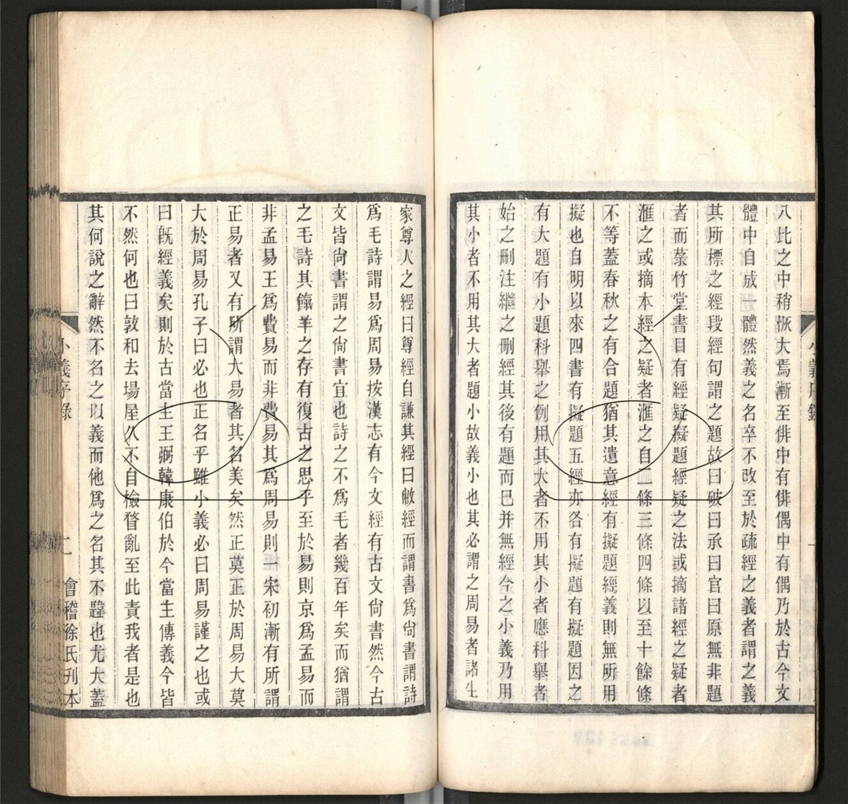 八比之中稍恢大焉漸至俳中有俳偶中有偶乃於古今文
體中自成一體然義之名卒不改至於疏經之義者謂之義
其所標之經段經句謂之題故曰破曰承曰官曰原無非題
者而菉竹堂書目有經疑擬題經疑之法或摘諸經之疑者
滙之或摘本經之疑者滙之自二條三條四條以至十餘條
不等蓋春秋之有合題猶其遺意經有擬題經義則無所用
擬也自明以來四書有擬題五經亦各有擬題有擬題因之
有大題有小題科舉之例用其大者不用其小者應科舉者
始之刪注繼之刪經其後有題而巳并無經今之小義乃用
其小者不用其大者題小故義小也其必謂之周易者諸生
家尊人之經曰尊經自謙其經曰敝經而謂書爲尙書謂詩
爲毛詩謂易爲周易按漢志有今文經有古文尙書然今古
文皆尙書謂之尙書宜也詩之不爲毛者幾百年矣而猶謂
之毛詩其餼羊之存有復古之思乎至於易則京爲孟易而
非孟易王爲費易而非費易其爲周易則一宋初漸有所謂
正易者又有所謂大易者其名美矣然正莫正於周易大莫
大於周易孔子曰必也正名乎雖小義必曰周易謹之也或
曰旣經義矣則於古當主王弼韓康伯於今當主傳義今皆
不然何也曰敦和去場屋久不自檢瞀亂至此責我者是也
其何說之辭然不名之以義而他爲之名其不韙也尤大蓋
小義序錄
會稽徐氏刊本